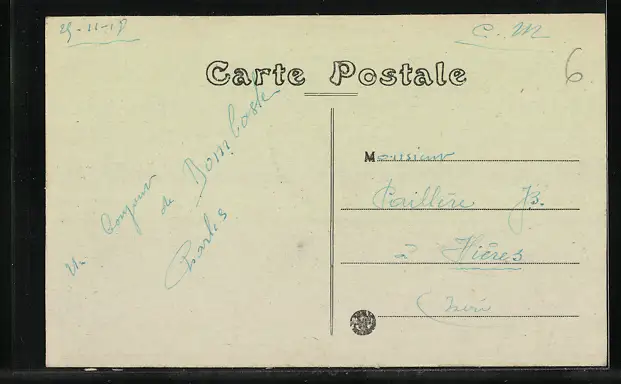 29-11-18
C. M
6
Carte Postale
Un bonjour
de Dombasle
Charles
Monsieur
Paillère JB.
à Hières
(Isère